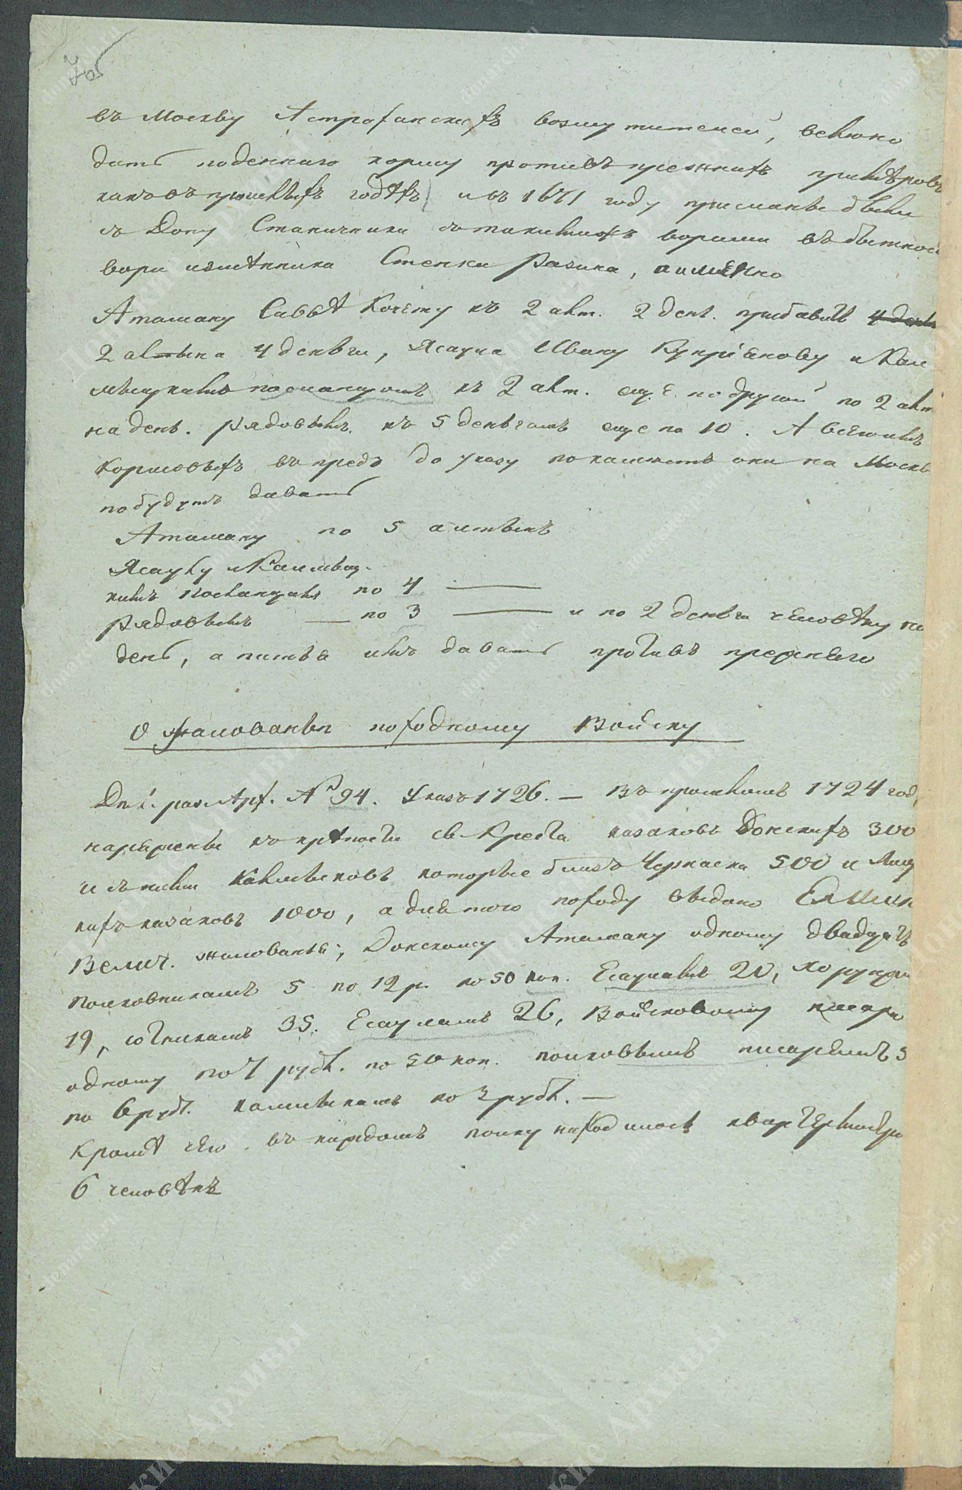 въ Москву Астраханскихъ возмутителей, велено
дать поденнаго корму противъ прежнихъ примѣровъ
какъ въ прошлыхъ годѣхъ и въ 1671 году присланы были
съ Дону Станичники съ такими ворами въ бытность
вора измѣнника Стеньки Разина, а имянно
Атаману Савѣ Кочету къ 2 алт. 2 ден. прибавить 4 ден
2 алтына 4 деньги, Ясаулу Ивану Купріянову и Кал
мыцкимъ посланцомъ къ 2 алт. еще по другой по 2 алт
на день. рядовымъ къ 5 деньгамъ еще по 10. А
кормовыхъ впредь до указу покамѣстъ они на Москвѣ
побудутъ давать
Атаману по 5 алтынъ
Ясаулу и Калмыц-
кимъ посланцамъ по 4 —
рядовымъ — по 3 — и по 2 деньги человѣку на
день, а питья имъ давать противъ прежняго
О жалованьи походному Войску
Арх. № 94. Указъ 1726. — Въ прошломъ 1724 год
наряжены къ крѣпости св. Креста казаковъ Донскихъ 300
и съ ними Калмыковъ которые близъ Черкаска 500 и
кихъ казаковъ 1000, а для того походу выдано Ея Импе
Велич. жалованья; Донскому Атаману одному двадцать
полковникамъ 5 по 12 р. по 50 коп. Есауламъ 20, хорунж
19, сотникамъ 35. Есауламъ 26, Войсковому писарю
одному по 7 рубл. по 50 коп. полковымъ писарямъ 5
по 6 рубл. калмыкамъ по 3 рубл. —
Кромѣ сего въ каждомъ полку находилось квартермистр
6 человѣкъ